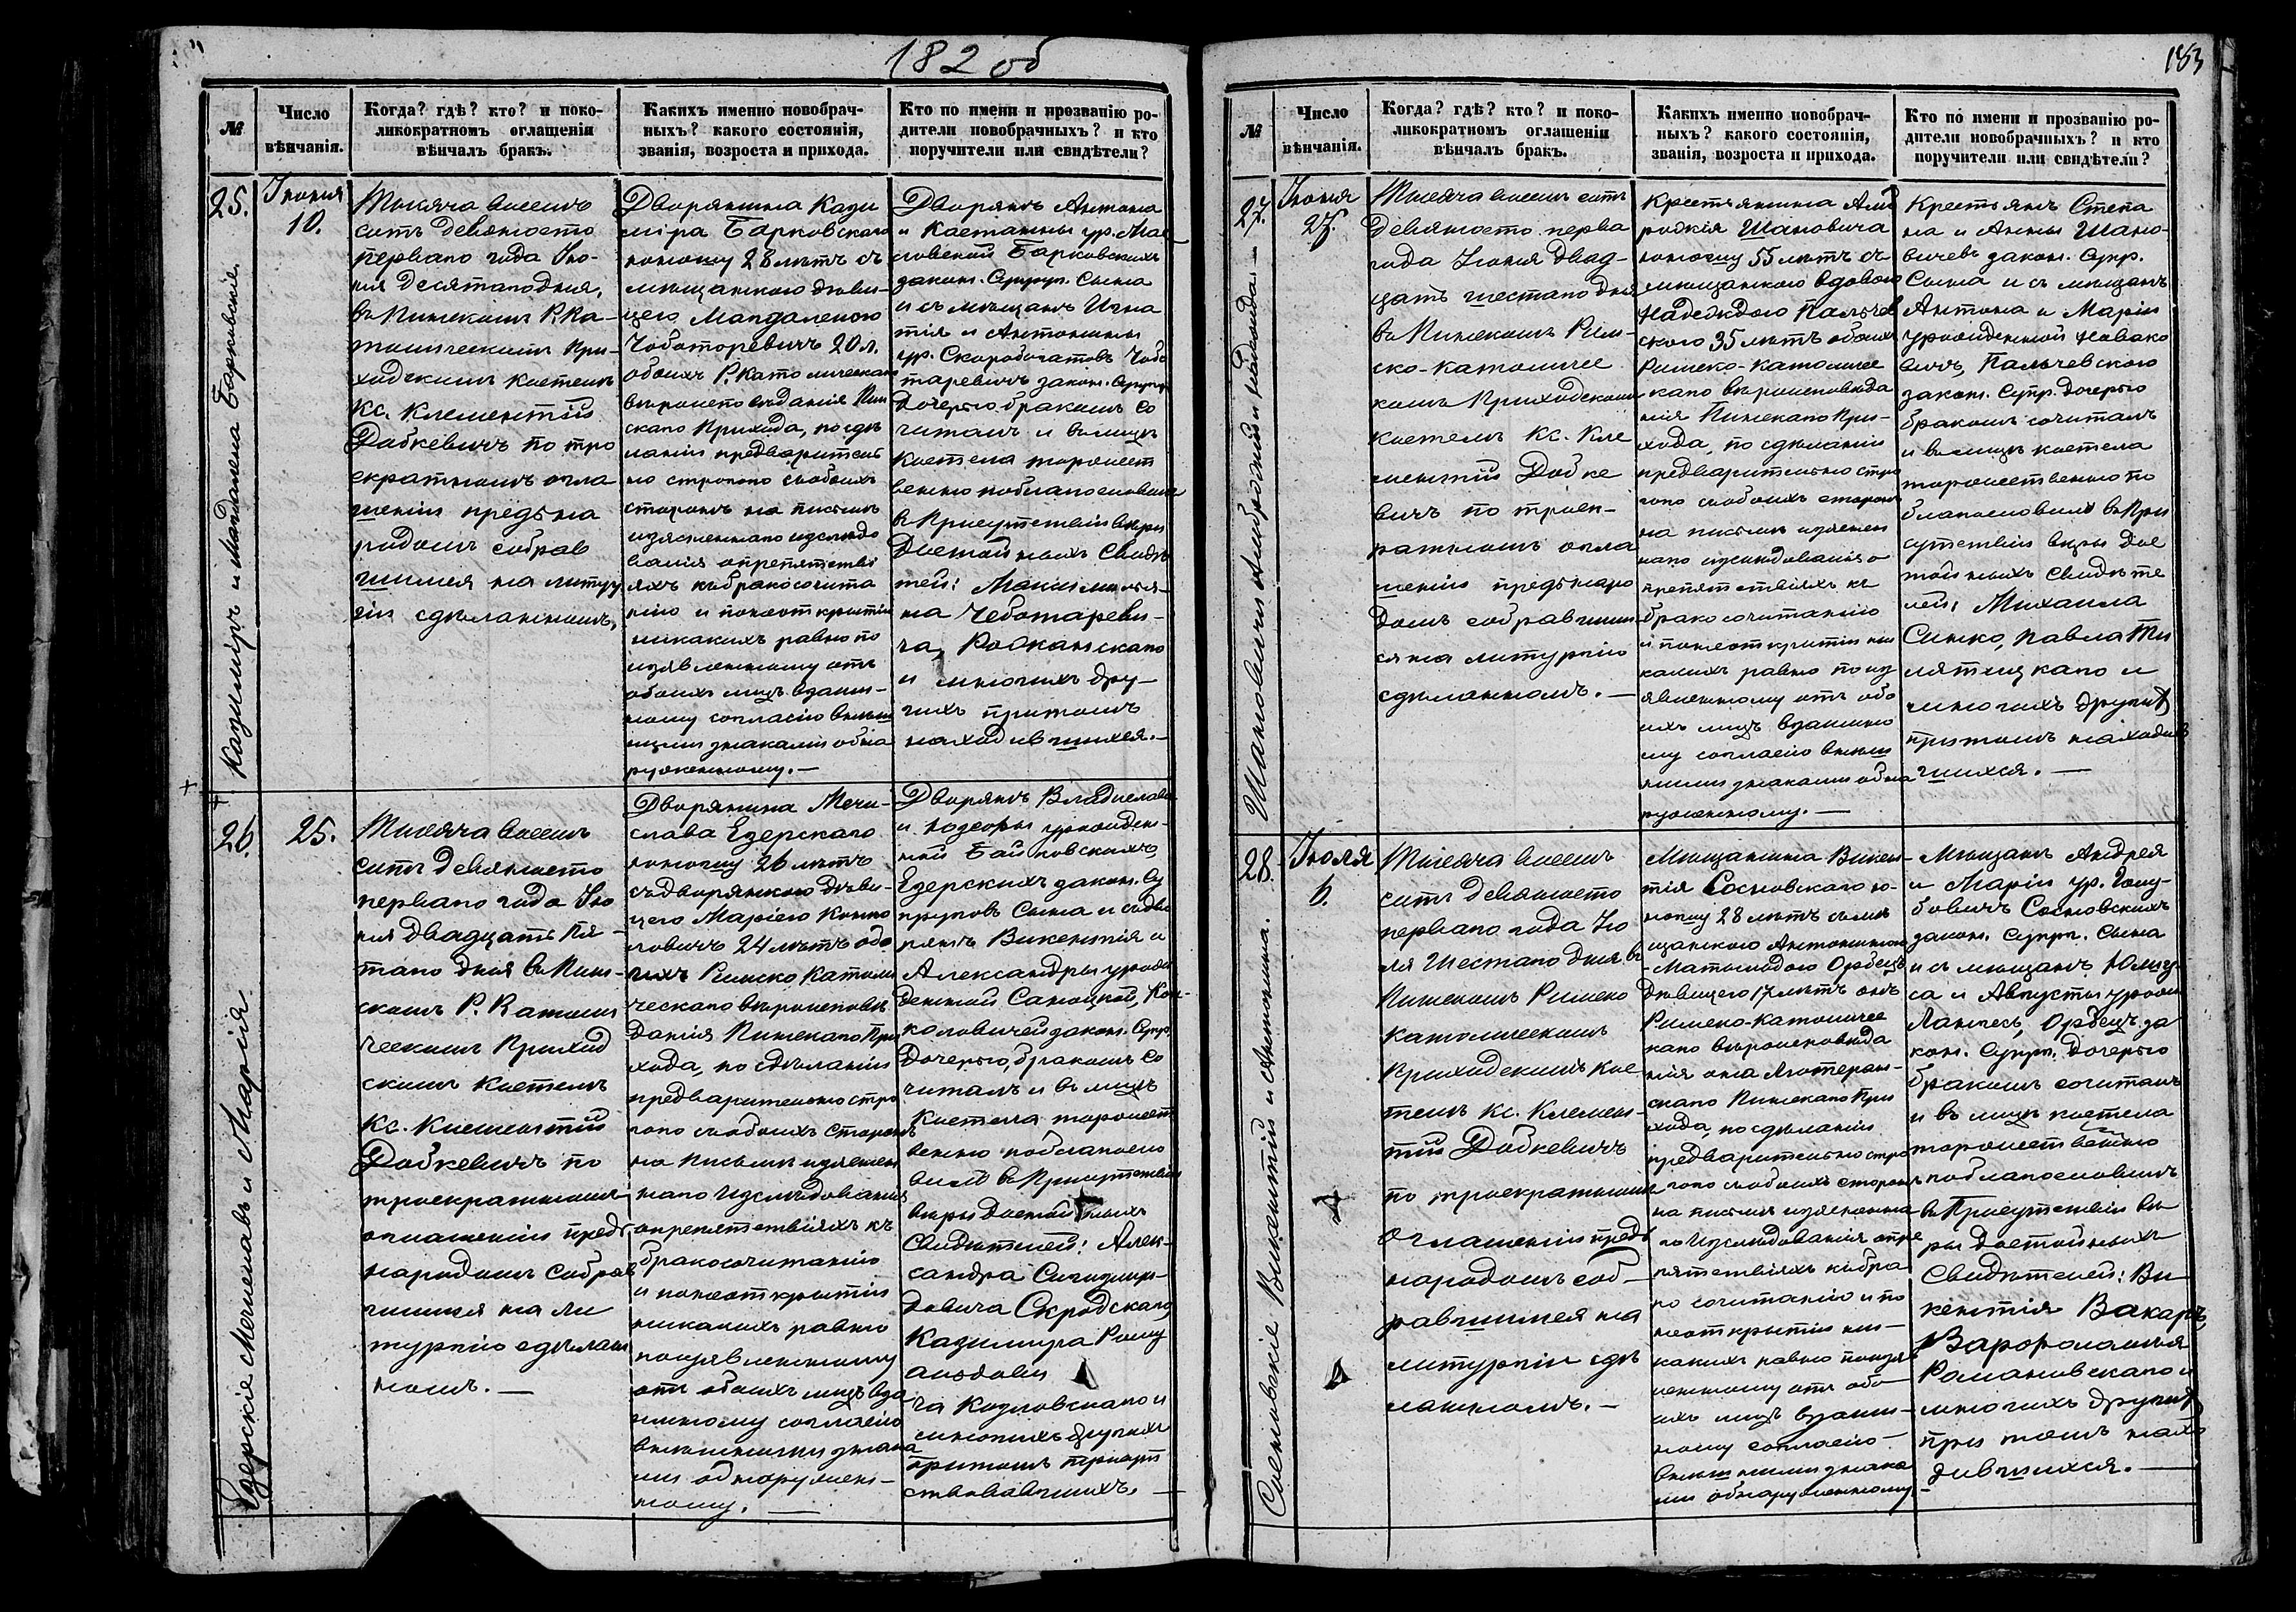 182 об
№
Число
вѣнчанія.
Когда? гдѣ? кто? и поко-
ликократномъ оглашеніи
вѣнчалъ бракъ.
Какихъ именно новобрач-
ныхъ? какого состоянія,
званія, возроста и прихода.
Кто по имени и прозванію ро-
дители новобрачныхъ? и кто
поручители или свидѣтели?
25.
Казимиръ и Магдалена Барковскіе
Іюня
10.
Тысяча восемь
сотъ девяносто
перваго года Ію-
ня десятаго дня,
въ Пинскомъ Р. Ка-
толическомъ При-
ходскомъ костелѣ
Кс. Клементій
Довкевичъ по тро
екратномъ огла
шеніи предъ на
родомъ собрав
шимся на литур
гіи сдѣланномъ,
Дворянина Кази
мира Барковскаго
юношу 28 лѣтъ съ
мѣщанкою дѣви-
цею Магдаленою
Чоботоревичъ 20 л.
обоихъ Р. Католическаго
вѣроисповѣданія Пин
скаго Прихода, по сдѣ
ланіи предваритель
но строгого съ обоихъ
сторонъ на письмѣ
изясненнаго изслѣдо
ванія о препятстві
яхъ къ бракосочита
нію и по неоткрытіи
никакихъ равно по
изявленному отъ
обоихъ лицъ взаим-
ному согласію внѣш
ними знаками обна
руженному. —
Дворянъ Антона
и Констанціи ур. Мас
ловской Барковскихъ
закон. Супруг. Сына
и съ мѣщанъ Игна
тія и Антонины
ур. Скоробогатовъ Чобо
таревичъ закон. Супруг
Дочерью бракомъ со
читалъ и въ лицѣ
костела торжест
венно поблагословилъ
въ Присутствіи вѣры
Достойныхъ Свидѣ
телей: Максимилья-
на Чеботареви-
ча,
и многихъ дру-
гихъ притомъ
находившихся. —
26.
Езерскіе Мечиславъ и Марія
25.
Тысяча восемь
сотъ девяносто
перваго года Ію
ня двадцать пя-
таго дня въ Пин-
скомъ Р. Католи
ческомъ Приход
скомъ костелѣ
Кс. Клементій
Довкевичъ по
троекратномъ
оглашеніи предъ
народомъ Собрав
шимся на ли
тургію сдѣлан
номъ. —
Дворянина Мечи-
слава Езерскаго
юношу 26 лѣтъ
съ дворянкою дѣви-
цею Маріею Конко
ловичъ 24 лѣтъ обо
ихъ Римско Католи
ческаго вѣроисповѣ
данія Пинскаго При
хода, по сдѣланіи
предварительно стро
гого съ обоихъ Сторонъ
на письмѣ изяснен
наго изслѣдованія
о препятствіяхъ къ
бракосочитанію
и по неоткрытіи
никакихъ равно
по изявленному
отъ обоихъ лицъ вза
имному согласію
внѣшними знака
ми обнаружен-
ному. —
Дворянъ Владислава
и урожден-
ной
Езерскихъ закон. Су
пруговъ Сына и съ дво
рянъ Викентія и
Александры урож
денной Савицкой, Кон-
коловичей закон. Супр.
Дочерью, бракомъ со
читалъ и въ лицѣ
Костела торжест
венно поблагосло
вилъ въ Присутствіи
вѣры Достойныхъ
Свидѣтелей: Алек-
сандра Сигизмун-
довича Скродскаго,
Казимира Рому
альдови
ча Козловскаго и
многихъ другихъ
притомъ присут
ствовавшихъ. —
183
№
Число
вѣнчанія.
Когда? гдѣ? кто? и поко-
ликократномъ оглашеніи
вѣнчалъ бракъ.
Какихъ именно новобрач-
ныхъ? какого состоянія,
званія, возроста и прихода.
Кто по имени и прозванію ро-
дители новобрачныхъ? и кто
поручители или свидѣтели?
27.
Шановичи Амброжій и Надежда —
Іюня
Тысяча восемь сотъ
девяносто перва
года Іюня двад-
цать шестаго дня
въ Пинскомъ Рим-
ско-католичес
комъ Приходскомъ
костелѣ Кс. Кле
ментій Довке
вичъ по троек-
ратномъ огла
шеніи предъ наро
домъ собравшим
ся на литургію
сдѣланномъ. —
Крестьянина Амб
рожія Шановича
юношу 55 лѣтъ съ
мѣщанкою вдовою
Надеждою Пальчев
скою 35 лѣтъ обоихъ
Римско-католичес
каго вѣроисповѣда
нія Пинскаго При-
хода, по сдѣланіи
предварительно стро
гого съ обоихъ сторонъ
на письмѣ изяснен
наго изслѣдованія о
препятствіяхъ къ
бракосочитанію
и по неоткрытіи ни
какихъ равно по из
явленному отъ обо
ихъ лицъ взаимно
му согласію внѣш
ними знаками обна
руженному. —
Крестьянъ Степа
на и Анны Шано-
вичевъ закон. Супр.
Сына и съ мѣщанъ
Антона и Маріи
урожденной Новако
вичъ, Пальчевскаго
закон. Супр. Дочерью
бракомъ сочиталъ
и въ лицѣ костела
торжественно по
благословилъ въ При
сутствіи вѣры дос
тойныхъ Свидѣте
лей: Михаила
Синко, Павла
и
многихъ другихъ
притомъ находив
шихся. —
28.
Сосновскіе Викентій и Антонина.
Іюля
6.
Тысяча восемь
сотъ девяносто
перваго года Ію
ля шестаго дня въ
Пинскомъ Римско
католическомъ
Приходскомъ кос
телѣ Кс. Клемен-
тій Довкевичъ
по троекратномъ
оглашеніи предъ
народомъ соб-
равшимся на
литургіи сдѣ
ланномъ. —
Мѣщанина Викен-
тія Сосновскаго ю-
ношу 28 лѣтъ съ мѣ
щанкою Антониною
Матильдою Орбецъ
Дѣвицею 17 лѣтъ онъ
Римско-католичес
каго вѣроисповѣда
нія она Лютеран-
скаго Пинскаго При
хода, по сдѣланіи
предварительно стро
гого съ обоихъ сторонъ
на письмѣ изясненна
го изслѣдованія о пре
пятствіяхъ къ бра
ко сочитанію и по
неоткрытіи ни-
какихъ равно по изяв
ленному отъ обо
ихъ лицъ взаим-
ному согласію
внѣшними знака
ми обнаруженному —
Мѣщанъ Андрея
и Маріи ур. Голу-
бовичъ Сосновскихъ
закон. Супр. Сына
и съ мѣщанъ Юлиу-
са и Августы урожд
Орбецъ за
кон. Супр. Дочерью
бракомъ сочиталъ
и въ лицѣ костела
торжественно
поблагословилъ
въ Присутствіи вѣ
ры достойныхъ
Свидѣтелей: Ви
кентія Вакаръ,
Варфоломѣя
Романовскаго и
многихъ другихъ
при томъ нахо
дившихся. —